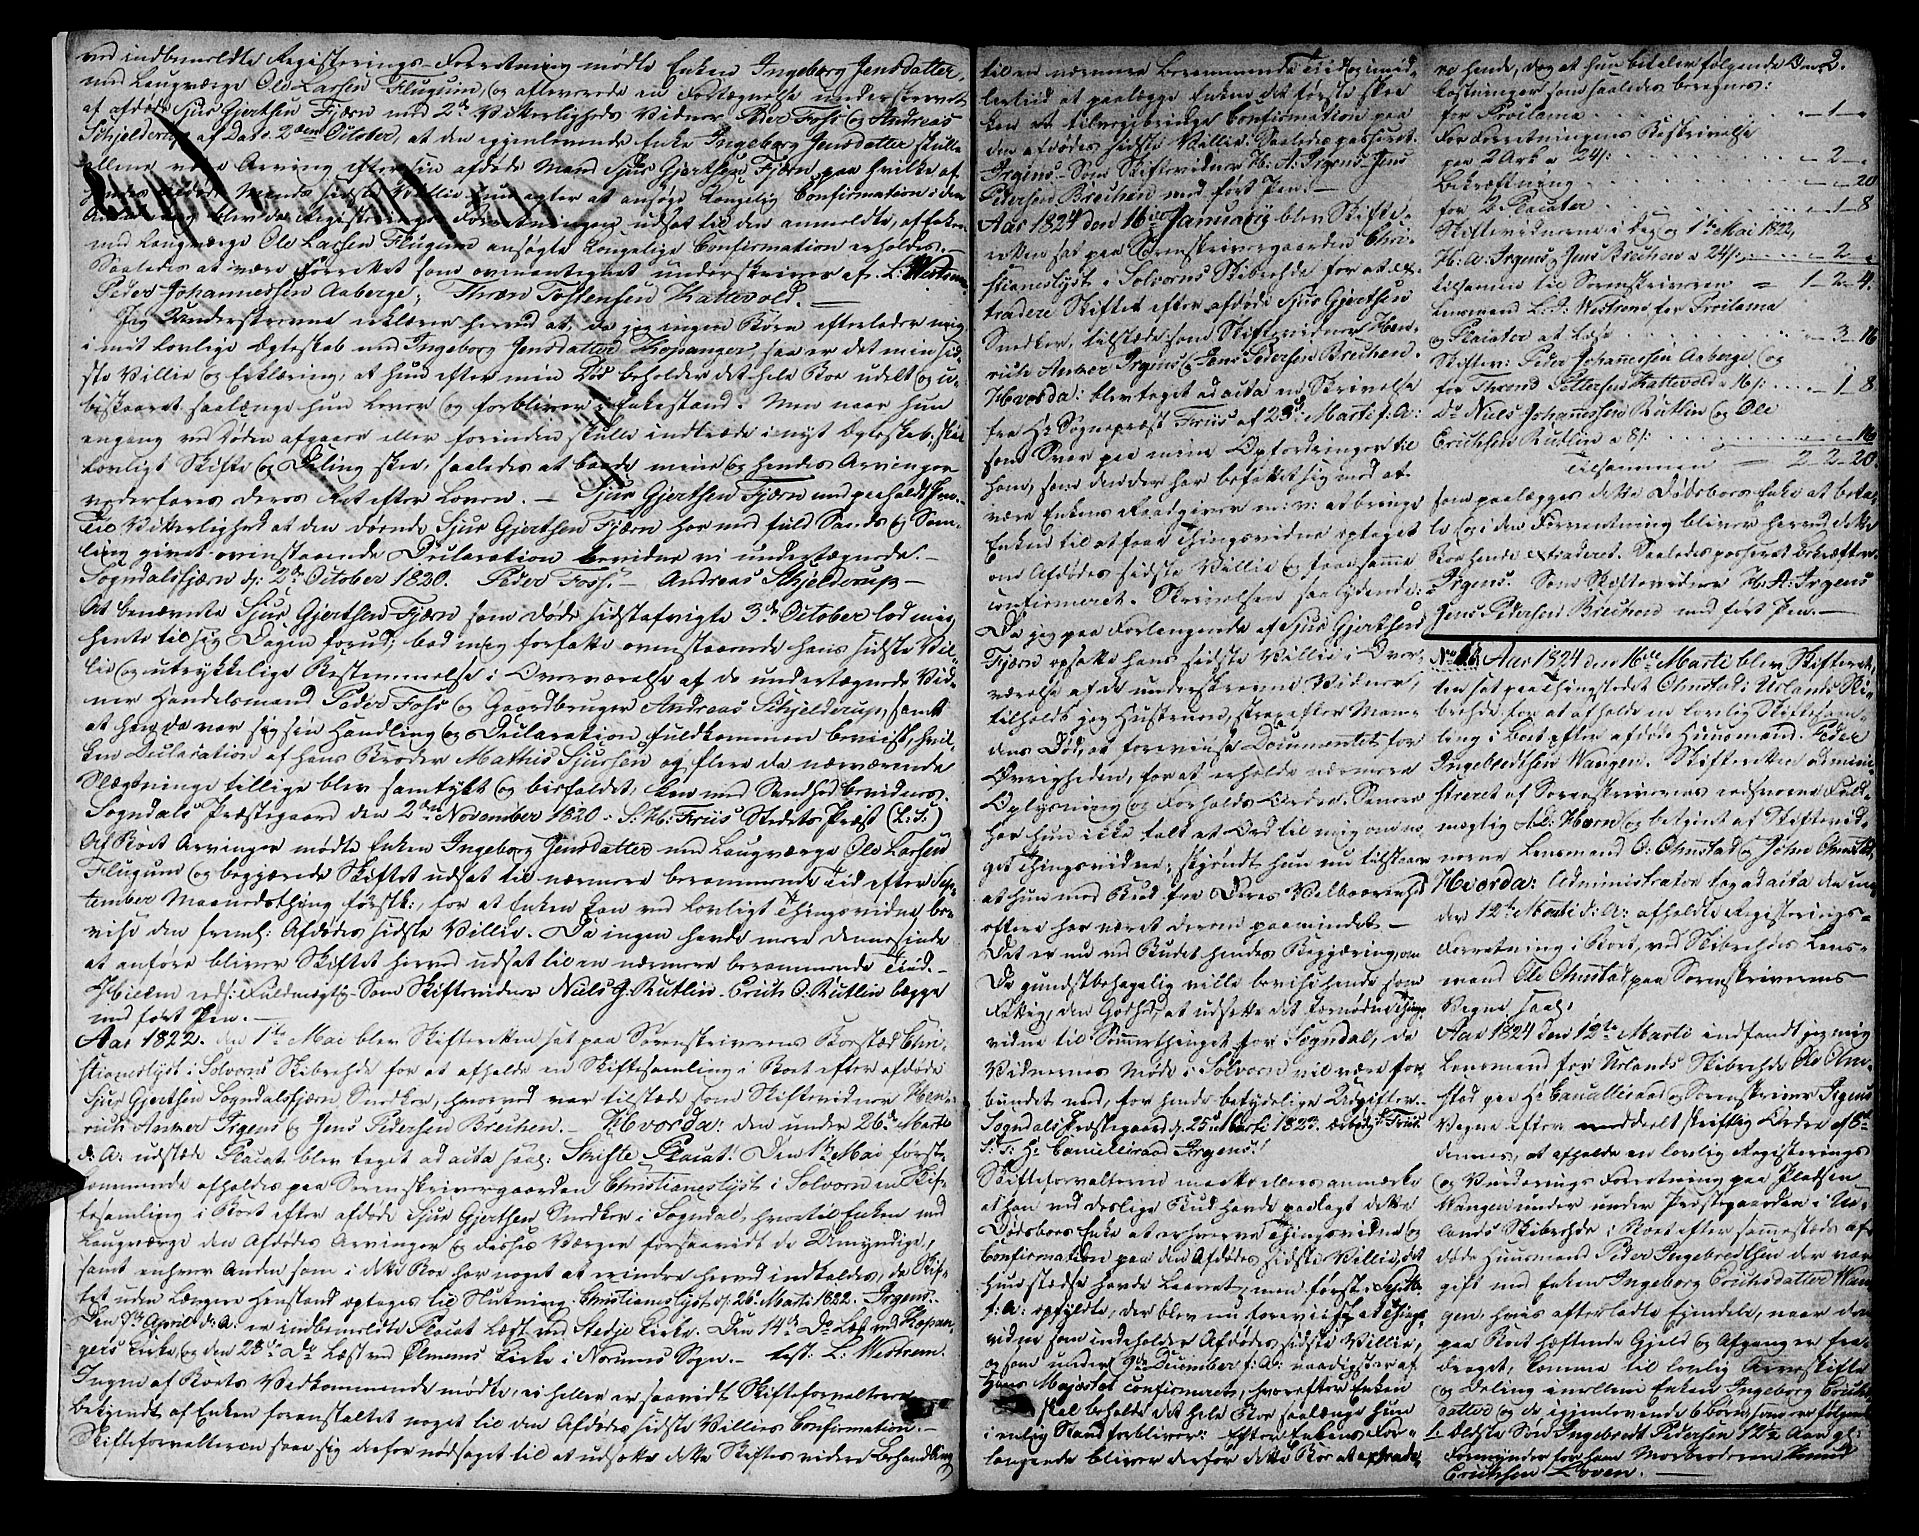 ved indbemeldte Registerings-Forretning mødte Enken Ingeborg Jensdatter,
med Laugværge Ole Larsen Flugum, og afleverede en Fortegnelse underskrevet
af afdøde Sjur Gjerthsen Fjærn med 2de Vitterligheds Vidner Peder Foss og Andreas
Schjelderup af Dato 2den October, at den igjenlevende Enke Ingeborg Jensdatter skulle
allene være Arving efter sin afdøde Mand Sjur Gjerthsen Fjærn paa hvilke af
Mands sidste Villie hun agter at ansøge Kongelig Confirmation i den
Anledning blev da Registerings Forretningen udsat til den anmeldte, af Enken
med Laugværge Ole Larsen Flugum ansøgte Kongelige Confirmation erholdes. –
Saaledes at være forrettet som ovenantegnet underskriver af. L. Westrem
Peder Johannessen Aaberge, Thron Tostensen Kattevold. –
Jeg Underskrevne erklærer herved at, da jeg ingen Børn efterlader mig
i mit lovlige Ægteskab med Ingeborg Jensdatter Kopanger, saa er det min sid-
ste Villie og Erklæring, at hun efter min Død beholder det hele Boe udelt og u-
beskaaret saalænge hun lever og forbliver i Enkestand. Men naar hun
engang ved Døden afgaaer eller forinden skulle indtræde i nyt Ægteskab, skal
lovligt Skifte og Deling skee, saaledes at baade mine og hendes Arvinger
vederfares deres Ret efter Loven. – Sjur Gjerthsen Fjærn med paaholdt Pen.
Til Vitterlighed at den døende Sjur Gjerthsen Fjærn har med fuld Sands og Sam-
ling givet ovenstaaende Declaration bevidner vi undertegnede. –
Sogndalsfjærn d: 2den October 1820. Peder Foss. – Andreas Schjelderup –
At benævnte Sjur Gjerthsen Fjærn som døde sidstafvigte 3de October lod mig
hente til sig Dagen forud, bad mig forfatte ovenstaaende hans sidste Vil-
lie og udtrykkelige Bestemmelse i Overværelse af de undertegnede Vid-
ner Handelsmand Peder Foss og Gaardbruger Andreas Schjelderup, samt
at han da var sig sin Handling og Declaration fuldkommen bevist, hvil-
ken Declaration af hans Broder Mathis Sjursen og flere da nærværende
Slægtninge tillige blev samtykt og bifaldet, kan med Sandhed bevidnes.
Sogndals Præstegaard den 2den November 1820. S. H: Friis Stedets Præst (L. S.)
Af Boets Arvinger mødte Enken Ingeborg Jensdatter med Laugværge Ole Larsen
Flugum og begjærede Skiftet udsat til nærmere berammende Tid efter Sep-
tember Maanedsthing førstk:, for at Enken kan ved lovligt Thingsvidne be-
vise den freml: Afdødes sidste Villie. Da ingen havde mere dennesinde
at anføre bliver Skiftet herved udsat til en nærmere berammende Tiid. –
Hielm edsv: Fuldmægtig. Som Skiftevidner Niels J. Rutlin. Erich O. Rutlin begge
med ført Pen. –
Aar 1822. den 1te Mai blev Skifteretten sat paa Sorenskriverens Bopæl Chri-
stianslyst i Solvorns Skibrehde for at afholde en Skiftesamling i Boet efter afdøde
Sjur Gjerthsen Sogndalsfjærn Snedker, hvorved var tilstæde som Skiftevidner Hen-
rich Antver Irgens og Jens Pedersen Breihen. – Hvorda: den under 26de Martii
d: A: udstæde Placat blev taget ad acta saal: Skifte Placat! Den 1te Mai først-
kommende afholdes paa Sorenskrivergaarden Christianslyst i Solvorn en Skif-
tesamling i Boet efter afdøde Sjur Gjerthsen Snedker i Sogndal, hvortil Enken med
Laugværge den Afdødes Arvinger og disses Værger forsaavidt de Umyndige,
samt enhver Anden som i dette Boe har noget at erindre herved indkaldes, da Skif-
tet uden længere Henstand optages til Slutning. Christianslyst d: 26de Martii 1822. Irgens.
Den 7de April d: A. er indbemeldte Placat læst ved Stedje Kirke. Den 14de Do læst ved Kopan-
gers Kirke og den 28de Do læst ved Olmems Kirke i Norums Sogn. – test: L: Westrem.
Ingen af Boets Vedkommende mødte, ei heller er saavidt Skifteforvalteren
bekjendt af Enken foranstaltet noget til den Afdødes sidste Villies Confirmation. –
Skifteforvalteren saae sig derfor nødsaget til at udsætte dette Skiftes videre Behandling
til en nærmere berammende Tiid og imid-
lertid at paalægge Enken det første skee
kan at tilveiebringe Confirmation paa
den afdødes sidste Villie. Saaledes passeret.
Irgens – Som Skiftevidner H. A. Irgens. Jens
Pedersen Breihen med ført Pen. –
Aar 1824 den 16de Januarij blev Skifte-
retten sat paa Sorenskrivergaarden Chri-
stianslyst i Solvorns Skibrehde for at ex-
tradere Skiftet efter afdøde Sjur Gjerthsen
Snedker, tilstæde som Skiftevidner Hen-
rich Antver Irgens og Jens Pedersen Breihen.
Hvorda: blev taget ad acta en Skrivelse
fra Hr Sognepræst Friis af 25de Martii f: A:
som Svar paa mine Opfordringer til
ham, som den der har befattet sig med at
være Enkens Raadgiver m: v: at bringe
Enken til at faae Thingsvidne optaget
om Afdødes sidste Villie og faae samme
confirmeret. Skrivelsen saalydende:
Da jeg paa Forlangende af Sjur Gjerthsen
Fjærn opsatte hans sidste Villie i Over-
værelse af de underskrevne Vidner,
tilholdt jeg Hustruen, strax efter Man-
dens Død, at foreviise Documentet for
Øvrigheden, for at erholde nærmere
Oplysning og Forholds Ordre. Senere
har hun ikke talt et Ord til mig om no-
get Thingsvidne, skjøndt hun nu tilstaaer
at hun med Bud fra Deres Velbaarenhed
oftere har været derom paamindet –
Det er nu ved Budet hendes Begjæring, om
De gunstbehagelig ville bevise hende som
Fattig, den Godhed, at udsætte det fornødne Things-
vidne til Sommerthinget for Sogndal, da
Vidnernes Møde i Solvorn vil være for-
bundet med, for hende betydelige Udgifter.
Sogndals Præstegaard d. 25de Martii 1823. ærbødigst Friis.
S. T. Hr Cancelliraad Irgens!
Skifteforvalteren maatte ellers anmærke
at han ved deslige Bud havde paalagt dette
Dødsboes Enke at erhverve Thingsvidne og
Confirmation paa den Afdødes sidste Villie, det
hun stedse havde lovet, men først
f: A: opfyldte, der blev nu foreviist et Things-
vidne som indeholder Afdødes sidste Villie,
og som under 9de December f: A: naadigst er af
Hans Majestæt confirmeret, hvorefter Enken
skal beholde det hele Boe saalænge hun
i enlig Stand forbliver. Efter Enkens For-
langende bliver derfor dette Boe at extrade-
2.
re hende, dog at hun betaler følgende Bos-
kostninger som saaledes beregnes:
for Proclama . . . – 1 – „
For Forretningens Beskrivelse
paa 2 Ark a 24ß: . . . – 2 – „
Bekræftning . . . – „ – 20
for 2 Placater . . . – 1 – 8
Skiftevidnerne i dag og 1te Mai 1822,
H: A: Irgens og Jens Breihen a 24ß: . . . – 2 – „
tilsammen til Sorenskriveren = 1 – 2 – 4.
Lensmand L. J. Westrem, for Proclama
og Placater at læse . . . – 3 – 16
Skiftev: Peder Johannessen Aaberge og
for Thrond Pettersen Kattevold a 16ß: . . . – 1 – 8
do Niels Johannessen Rutlin og Ole
Erichsen Rutlin a 8ß: . . . – „ – 16
Tilsammen = 2 – 2 – 20.
som paalægges dette Dødsboes Enke at beta-
le og i den Forventning bliver herved dette
Boe hende extraderet. Saaledes passeret bekræfter.
Irgens. Som Skiftevidner H: A: Irgens
Jens Pedersen Breihen med ført Pen. –
Aar 1824 den 16de Martii blev Skifteret-
ten sat paa Thingstedet Ohnstad i Urlands Ski-
brehde, for at afholde en lovlig Skiftesam-
ling i Boet efter afdøde Huusmand Peder
Ingebrethsen Wangen. Skifteretten admini-
streret af Sorenskriverens edsvorne Fuld-
mægtig Ad: Horn og betjent af Skiftevid-
nerne Lensmand O: Ohnstad og John Ohnstad,
Hvorda: Administrator tog ad acta den un-
der 12te Martii d: A: afholdte Registerings-
Forretning i Boet, ved Skibrehdets Lens-
mand Ole Ohnstad paa Sorenskriverens
Vegne saal:
Aar 1824 den 12te Martii indfandt jeg mig
Lensmand for Urlands Skibrehde Ole Ohn-
stad paa Hr Cancelliraad og Sorenskriver Irgens
Vegne efter meddeelt skriftlig Ordre af 6te
dennes, at afholde en lovlig Registerings
og Vurderings Forretning paa Pladsen
Wangen under under Præstegaarden i Ur-
lands Skibrehde i Boet efter sammestæds af-
døde Huusmand Peder Ingebrethsen der var
gift med Enken Ingeborg Erichsdatter Wan-
gen, hvis efterladte Eiendele, naar den
paa Boet hæftende Gjeld og Afgang er fra-
draget, komme til lovlig Arveskifte
og Deling imellem Enken Ingeborg Erichs-
datter og de igjenlevende 6 Børn, som er følgende
1. Ældste Søn Ingebret Pedersen 12½ Aar gl:
Formynder for ham Morbroderen Knud
Erichsen Loven. –